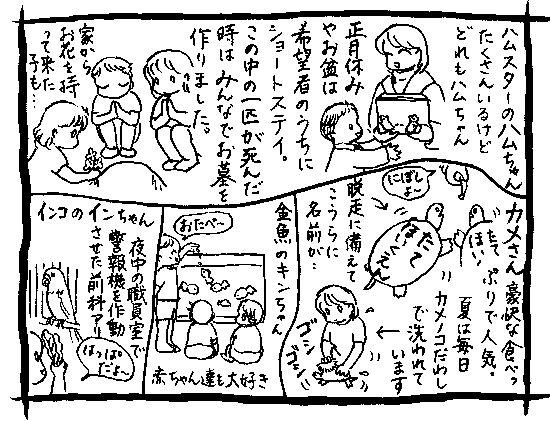 ハムスターのハムちゃん
たくさんいるけど
どれもハムちゃん
正月休み
やお盆は
希望者のうちに
ショートステイ。
この中の一匹が死んだ
時はみんなでお墓を
作りました。
家から
お花を持
って来た
子も…
カメさん 豪快な食べっ
ぷりで人気。
夏は毎日
カメノコだわし
で洗われて
います
にぼし
よ〜
脱走に備えて
こうらに
名前が…
たて
ほいくえん
たて
ほい
ゴシ
ゴシ
金魚のキンちゃん
おたべ〜
赤ちゃん達も大好き
インコのインちゃん
夜中の職員室で
警報機を作動
させた前科アリ
はっぱ
だよ〜